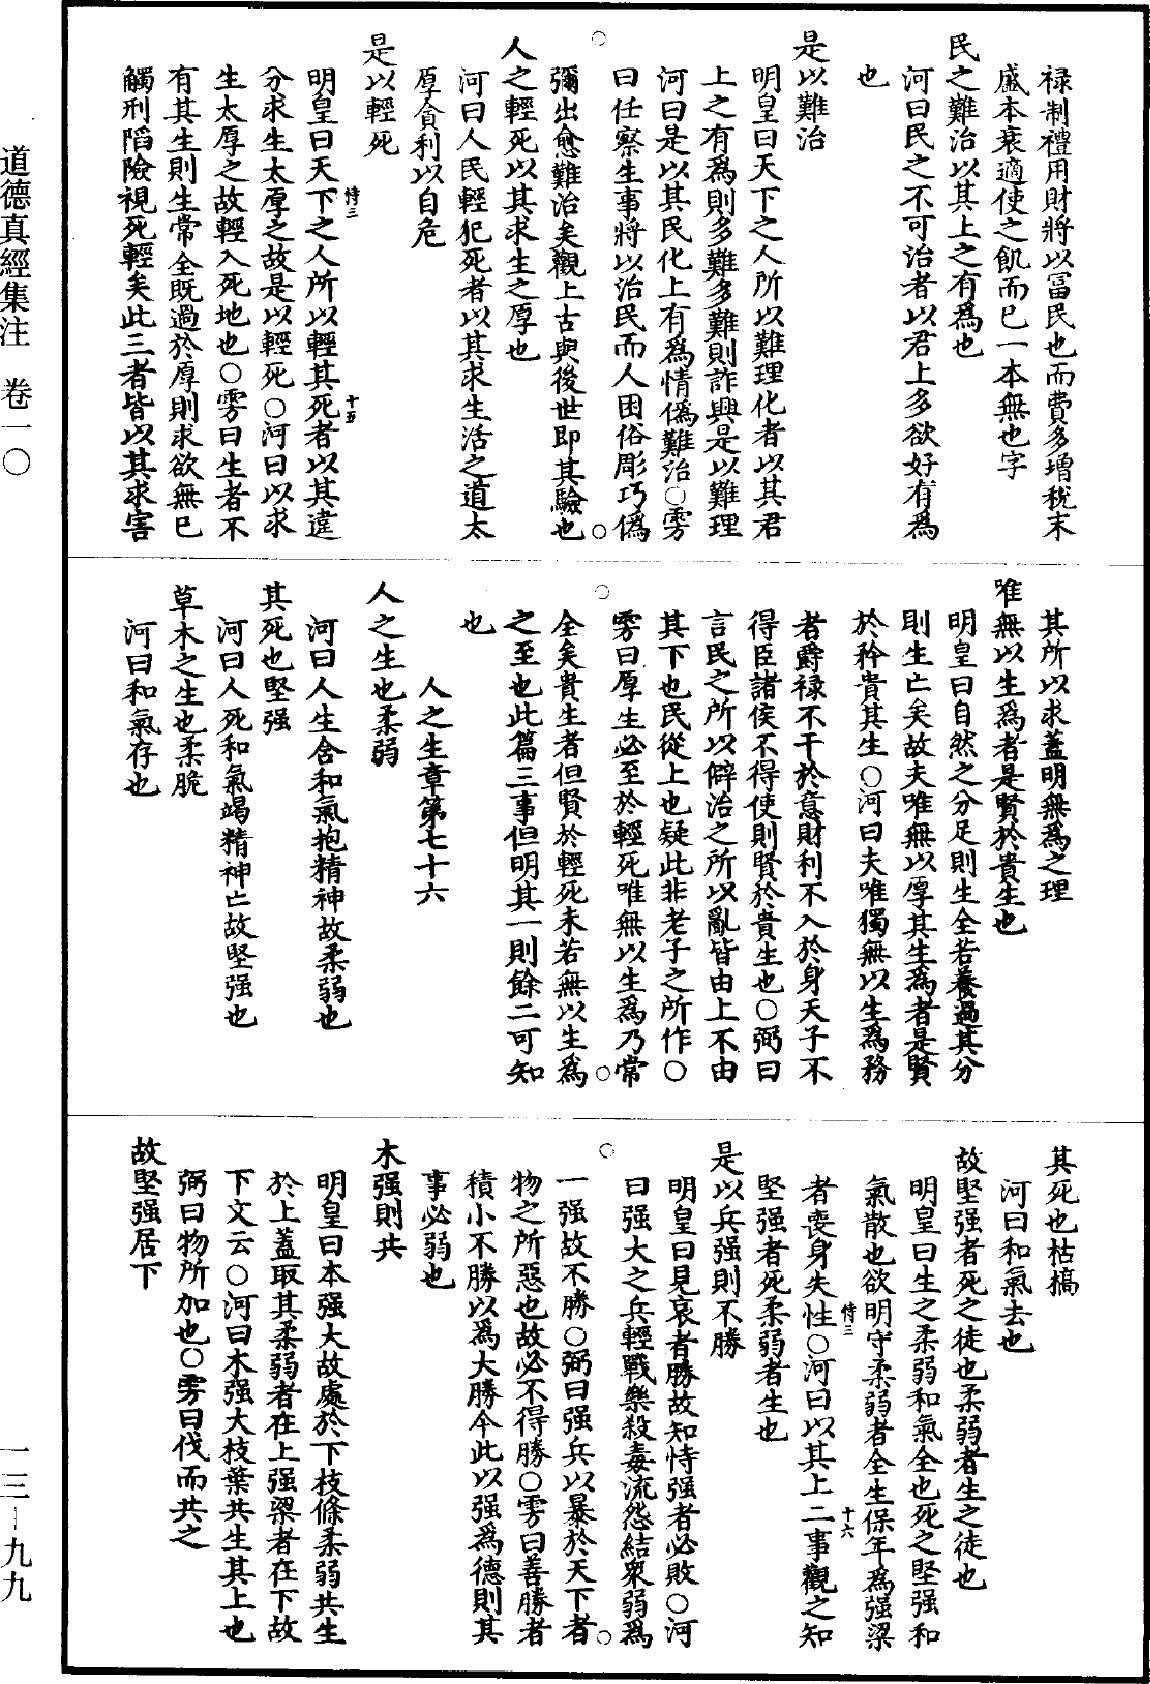 祿制禮用財將以富民也而費多增稅末
盛本衰適使之飢而已一本無也字
民之難治以其上之有爲也
河曰民之不可治者以君上多欲好有爲
也
是以難治
明皇曰天下之人所以難理化者以其君
上之有爲則多難多難則詐興是以難理
河曰是以其民化上有爲情僞難治○雱
曰任察生事將以治民而人困俗彫巧僞
彌出愈難治矣觀上古與後世即其驗也
人之輕死以其求生之厚也
河曰人民輕犯死者以其求生活之道太
厚貪利以自危
是以輕死
明皇曰天下之人所以輕其死者以其違
分求生太厚之故是以輕死○河曰以求
生太厚之故輕入死地也○雱曰生者不
有其生則生常全既過於厚則求欲無已
觸刑陷險視死輕矣此三者皆以其求害
其所以求蓋明無爲之理
唯無以生爲者是賢於貴生也
明皇曰自然之分足則生全若養過其分
則生亡矣故夫唯無以厚其生爲者是賢
於矜貴其生○河曰夫唯獨無以生爲務
者爵祿不干於意財利不入於身天子不
得臣諸侯不得使則賢於貴生也○弼曰
言民之所以僻治之所以亂皆由上不由
其下也民從上也疑此非老子之所作○
雱曰厚生必至於輕死唯無以生爲乃常
全矣貴生者但賢於輕死未若無以生爲
之至也此篇三事但明其一則餘二可知
也
人之生章第七十六
人之生也柔弱
河曰人生含和氣抱精神故柔弱也
其死也堅强
河曰人死和氣竭精神亡故堅强也
草木之生也柔脆
河曰和氣存也
其死也枯槁
河曰和氣去也
故堅强者死之徒也柔弱者生之徒也
明皇曰生之柔弱和氣全也死之堅强和
氣散也欲明守柔弱者全生保年爲强梁
者喪身失性○河曰以其上二事觀之知
堅强者死柔弱者生也
是以兵强則不勝
明皇曰見哀者勝故知恃强者必敗○河
曰强大之兵輕戰樂殺毒流怨結衆弱爲
一强故不勝○弼曰强兵以暴於天下者
物之所惡也故必不得勝○雱曰善勝者
積小不勝以爲大勝今此以强爲德則其
事必弱也
木强則共
明皇曰本强大故處於下枝條柔弱共生
於上蓋取其柔弱者在上强梁者在下故
下文云○河曰木强大枝葉共生其上也
弼曰物所加也○雱曰伐而共之
故堅强居下
道德真經集注　卷一〇
一三—九九
恃三
十五
恃三
十六